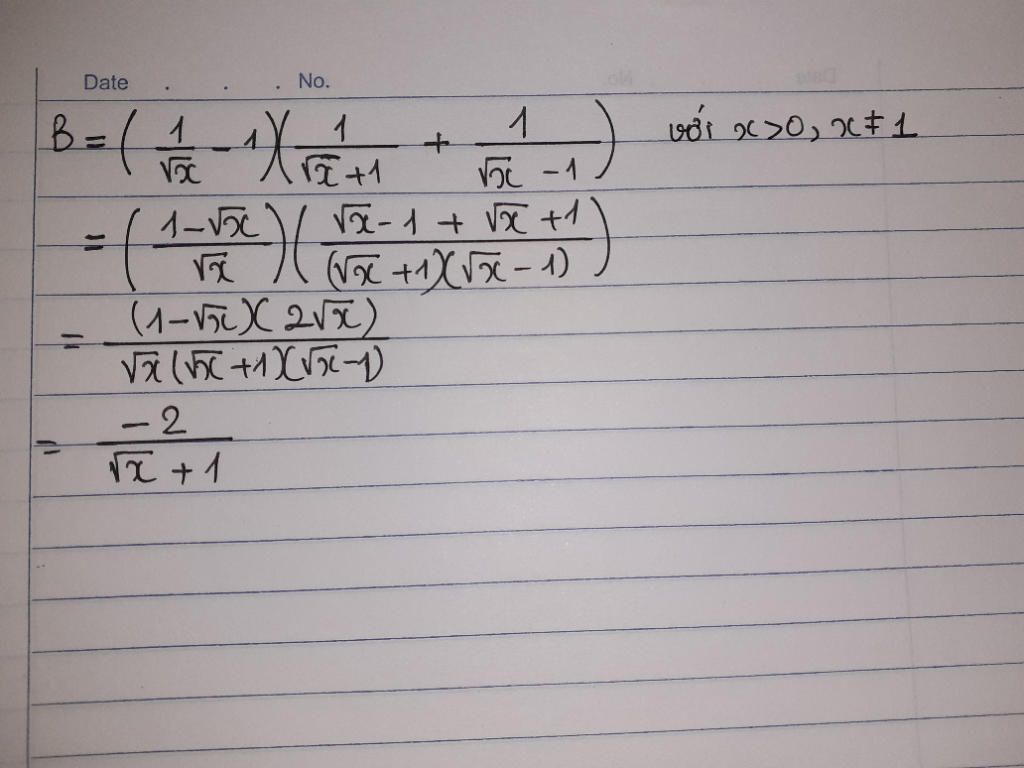 Date . . . No.
B = ( 1/√x - 1)( 1/(√x + 1) + 1/(√x - 1) ) với x>0, x≠1
= ( (1-√x)/√x )( (√x - 1 + √x + 1)/((√x + 1)(√x - 1)) )
= (1-√x)(2√x)/(√x(√x + 1)(√x - 1))
= -2/(√x + 1)